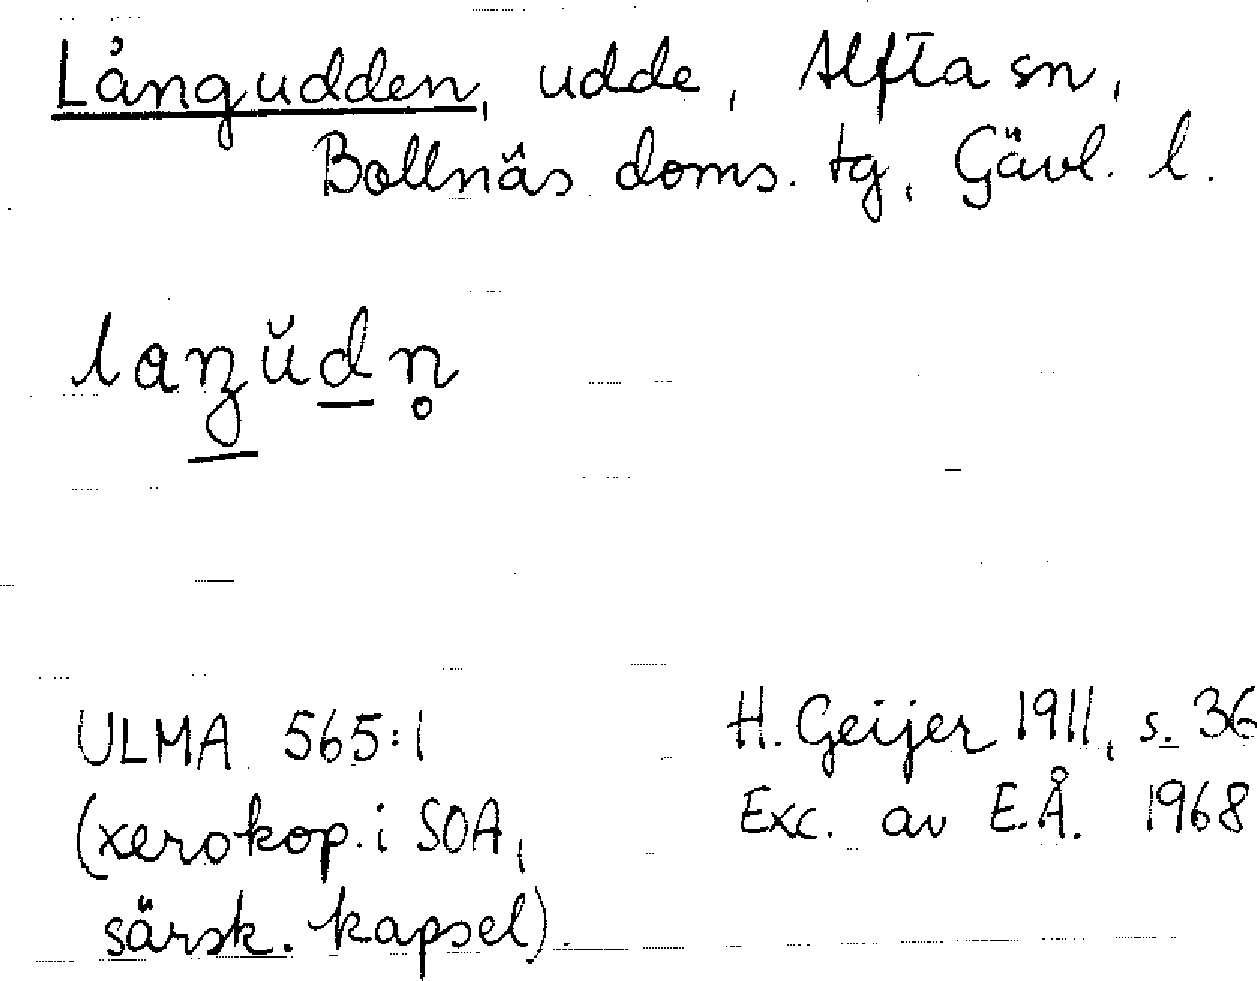 Långudden, udde, Alfta sn,
Bollnäs doms. tg, Gävl. l.
laŋŭdn̥
ULMA 565:1
(xerokop. i SOA,
särsk. kapsel).
H. Geijer 1911, s. 36
Exc. av E.Å. 1968